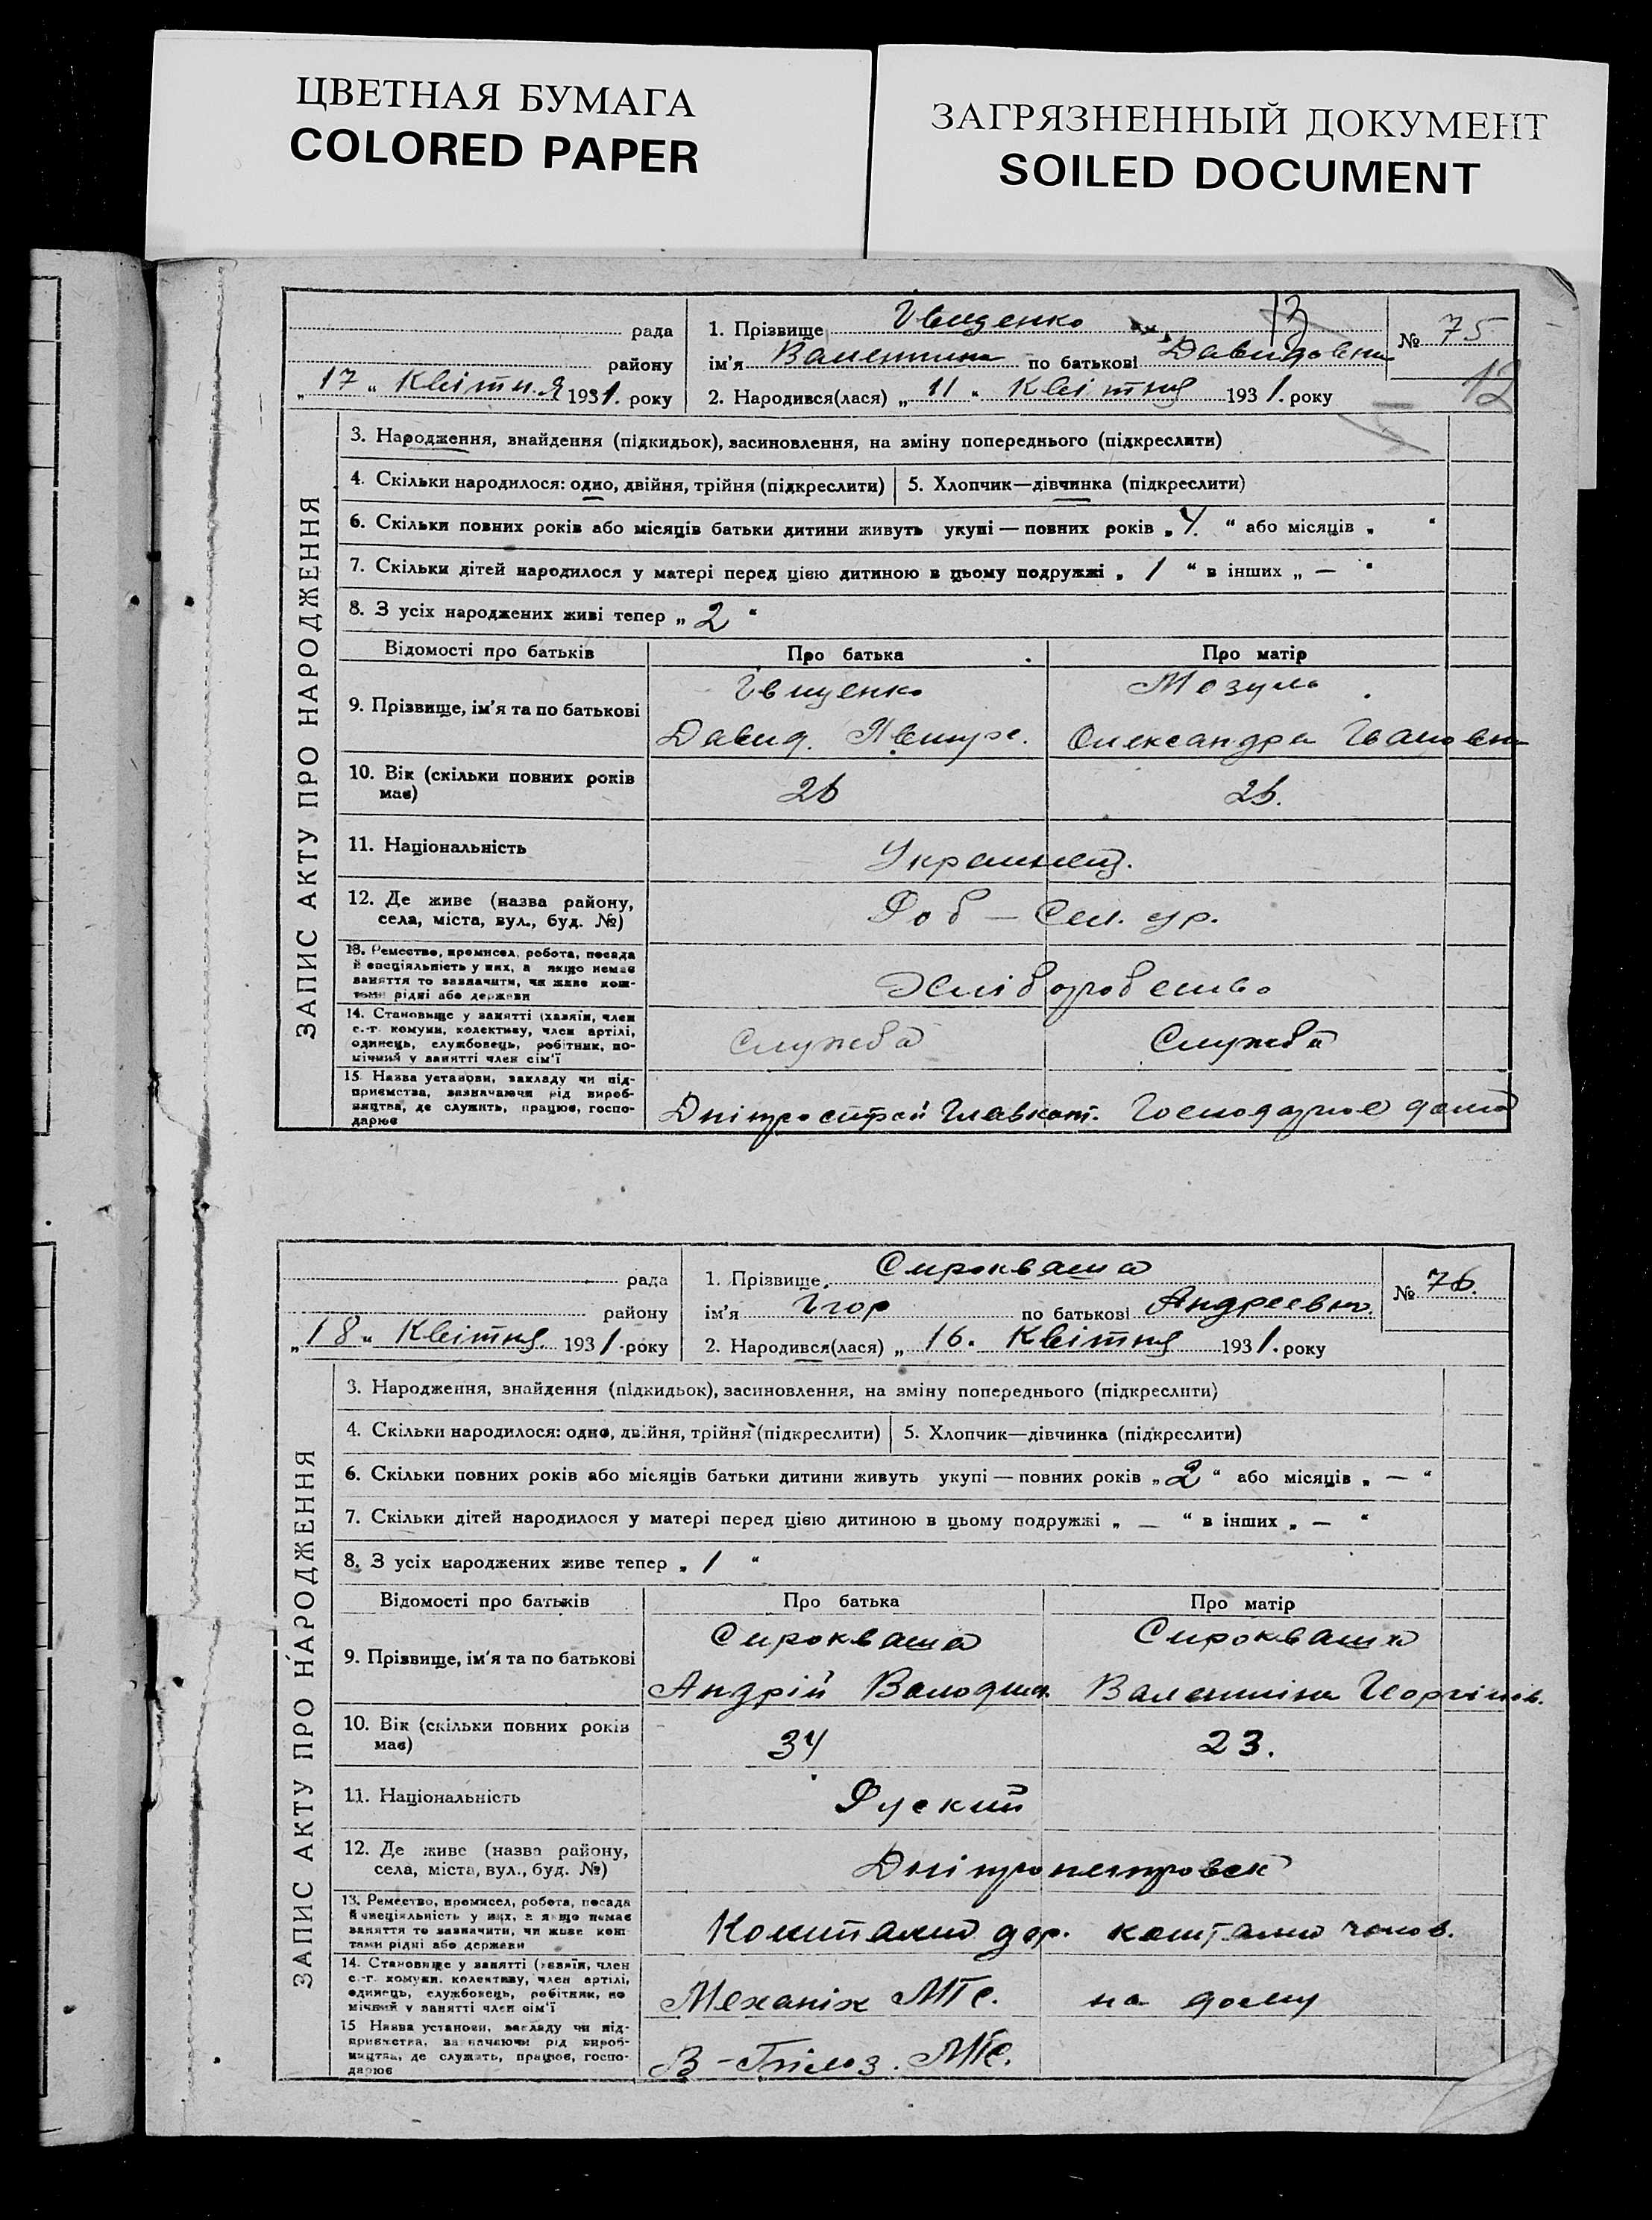 ЦВЕТНАЯ БУМАГА
COLORED PAPER
ЗАГРЯЗНЕННЫЙ ДОКУМЕНТ
SOILED DOCUMENT
рада
района
району
„17“ Квітня 1931. року
1. Прізвище Іващенко
13
ім'я Валентина по батькові Давидовна
2. Народився(лася) „11“ Квітня 1931. року
№ 75
12
ЗАПИС АКТУ ПРО НАРОДЖЕННЯ
3. Народження, знайдення (підкидьок), засиновлення, на зміну попереднього (підкреслити)
4. Скільки народилося: одно, двійня, трійня (підкреслити)
5. Хлопчик—дівчинка (підкреслити)
6. Скільки повних років або місяців батьки дитини живуть укупі — повних років „4.“ або місяців „ “
7. Скільки дітей народилося у матері перед цією дитиною в цьому подружжі „1“ в інших „—“
8. З усіх народжених живі тепер „2“
Відомості про батьків
Про батька
Про матір
9. Прізвище, ім'я та по батькові
Мозуль
Давид.
Олександра Івановна
10. Вік (скільки повних років має)
26
26.
11. Національність
Украинец.
12. Де живе (назва району, села, міста, вул., буд. №)
Роб —
13. Ремество, промисел, робота, посада й спеціяльність у них, а якщо немає заняття то зазначити, чи живе коштами рідні або держави
Хліборобство
14. Становище у занятті (хазяїн, член с.-г. комуни, колективу, член артілі, одинець, службовець, робітник, помічний у занятті член сім'ї
Служба
Служба
15. Назва установи, закладу чи підприємства, зазначаючи рід виробництва, де служить, працює, господарює
Дніпрострой Главкот. Господарює дома
рада
району
„18“ Квітня. 1931. року
1. Прізвище Сирокваша
ім'я Ігор по батькові Андреевич.
2. Народився(лася) „16. Квітня 1931. року
№ 76.
ЗАПИС АКТУ ПРО НАРОДЖЕННЯ
3. Народження, знайдення (підкидьок), засиновлення, на зміну попереднього (підкреслити)
4. Скільки народилося: одно, двійня, трійня (підкреслити)
5. Хлопчик—дівчинка (підкреслити)
6. Скільки повних років або місяців батьки дитини живуть укупі — повних років „2“ або місяців „—“
7. Скільки дітей народилося у матері перед цією дитиною в цьому подружжі „—“ в інших „—“
8. З усіх народжених живе тепер „1“
Відомості про батьків
Про батька
Про матір
9. Прізвище, ім'я та по батькові
Сирокваша
Сирокваша
Андрій Володим.
Валентіна Георгіев.
10. Вік (скільки повних років має)
34
23.
11. Національність
Руский
12. Де живе (назва району, села, міста, вул., буд. №)
Дніпропетровск
13. Ремество, промисел, робота, посада й спеціяльність у них, а якщо немає заняття то зазначити, чи живе коштами рідні або держави
Коштами дер.
коштами чолов.
14. Становище у занятті (хазяїн, член с.-г. комуни, колективу, член артілі, одинець, службовець, робітник, помічний у занятті член сім'ї
Механік МТС.
на дому
15 Назва установи, закладу чи підприємства, зазначаючи рід виробництва, де служить, працює, господарює
МТС.